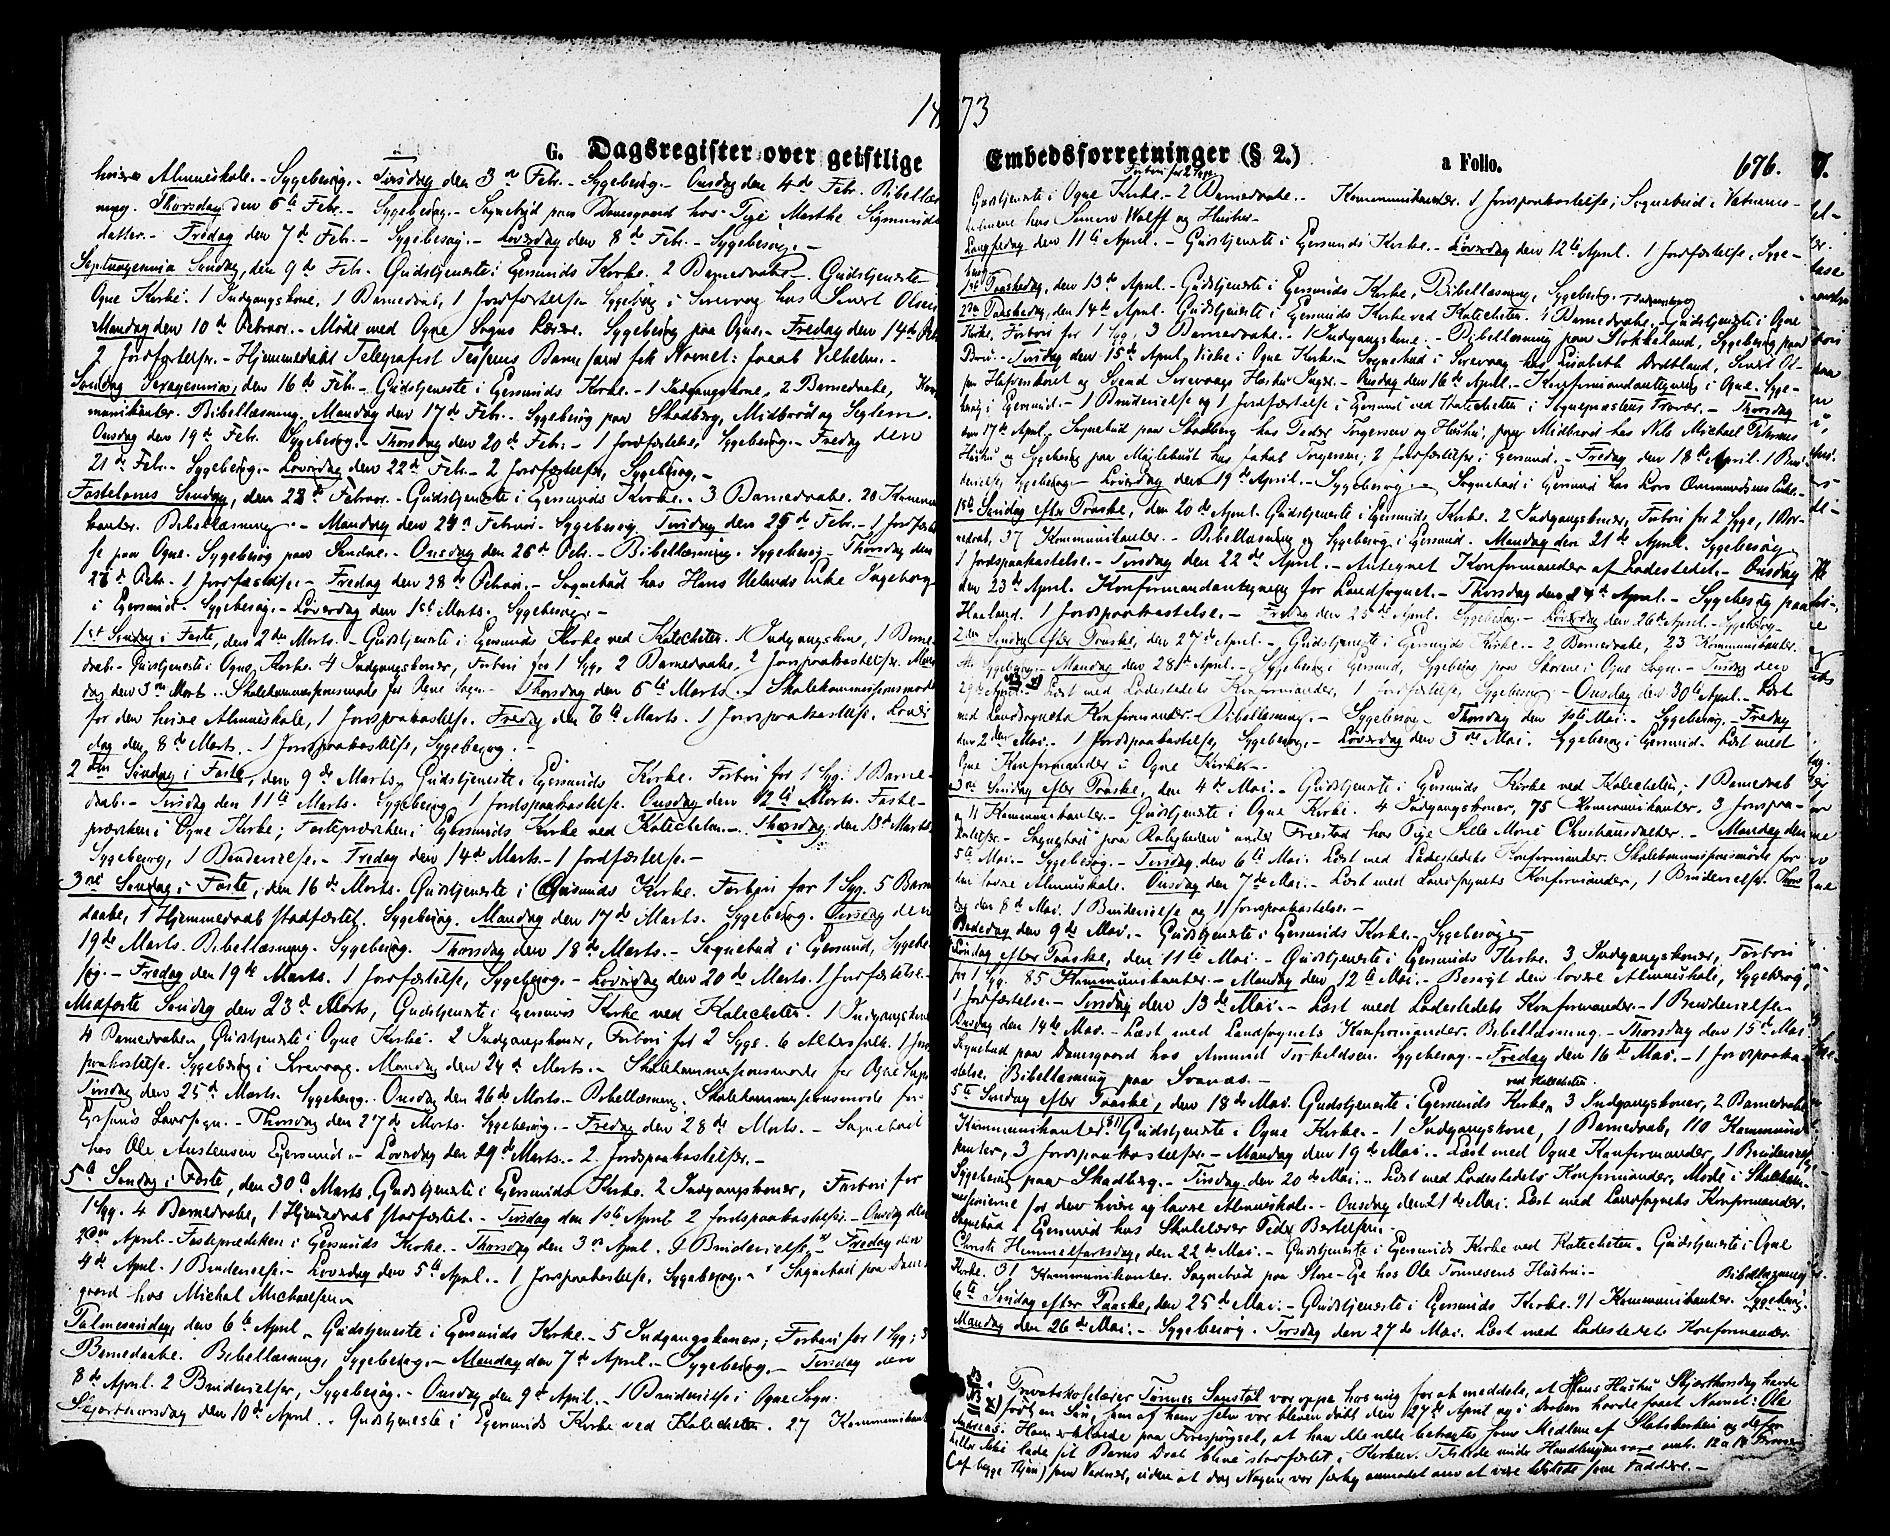 1873
G. Dagsregister over geistlige Embedsforretninger (§ 2.) a Folio. 676.
høiere Almueskole. - Sygebesøg. - Tirsdag den 3 Febr. - Sygebesøg. - Onsdag den 4de Febr. Bibellæs
ning. Thorsdag den 6te Febr. - Sygebesøg. - Sognebud paa Damsgaard hos Pige Marthe Sigmunds
datter. - Fredag den 7de Febr. - Sygebesøg. - Løverdag den 8de Febr. - Sygebesøg. -
Septuagesima Søndag, den 9de Febr. Gudstjeneste i Egersunds Kirke. 2 Barnedaabe. - Gudstjeneste
Ogne Kirke. 1 Indgangskone, 1 Barnedaab, 1 Jordfæstelse. Sygebesøg i Sirevaag hos Sivert Olsen
Mandag den 10de Februar. - Møde med Ogne Sogns Lærere. Sygebesøg paa Ogne. - Fredag den 14de Feb
2 Jordfæstelser. - Hjemmedøbt Telegrafist Barn som fik Navnet: Jacob Vilhelm. -
Søndag Sexagesima, den 16de Febr. - Gudstjeneste i Egersunds Kirke. - 1 Indgangskone, 2 Barnedaabe, Kom
munikanter. Bibellæsning. Mandag den 17de Febr. - Sygebesøg paa Skadberg, Midbrød og
Onsdag den 19de Febr. Sygebesøg. - Thorsdag den 20de Febr. - 1 Jordfæstelse, Sygebesøg. - Fredag den
21de Febr. - Sygebesøg. - Løverdag den 22de Febr. - 2 Jordfæstelser, Sygebesøg. -
Fastelavns Søndag, den 23de Februar. - Gudstjeneste i Egersunds Kirke. - 3 Barnedaabe. 20 Kommuni
kanter. Bibellæsning. - Mandag den 24de Februar. - Sygebesøg, Tirsdag den 25de Febr. - 1 Jordfæstel
se paa Ogne. Sygebesøg paa - Onsdag den 26de Febr. - Bibellæsning. Sygebesøg. - Thorsdag den
27de Febr. 1 Jordfæstelse. - Fredag den 28de Februar. - Sognebud hos Hans Uelands Enke Ingeborg
i Egersund. Sygebesøg. - Løverdag den 1ste Marts. Sygebesøg. -
1ste Søndag i Faste, den 2den Marts. - Gudstjeneste i Egersunds Kirke ved Katecheten. 1 Indgangskone, 1 Barne-
daab. - Gudstjeneste i Ogne Kirke. 4 Indgangskoner, Forbøn for 1 Syg, 2 Barnedaabe, 2 Jordspaakastelser. Man
dag den 3die Marts. - Skolekommissionsmøde for Ogne Sogn. - Thorsdag den 6te Marts. - Skolekommissionsmøde
for den høiere Almueskole, 1 Jordspaakastelse. Fredag den 7de Marts. 1 Jordspaakastelse. Løver
dag den 8de Marts. - 1 Jordspaakastelse, Sygebesøg. -
2den Søndag i Faste, den 9de Marts, Gudstjeneste i Egersunds Kirke. Forbøn for 1 Syg. 1 Barne-
daab. - Tirsdag den 11te Marts. Sygebesøg 1 Jordspaakastelse. Onsdag den 12te Marts. Faste-
prædiken i Ogne Kirke; Fasteprædiken i Egersunds Kirke ved Katecheten. - Thorsdag den 13de Marts.
Sygebesøg, 1 Brudevielse. - Fredag den 14de Marts. - 1 Jordfæstelse. -
3die Søndag i Faste, den 16de Marts. Gudstjeneste i Egersunds Kirke. Forbøn for 1 Syg. 5 Barne
daabe, 1 Hjemmedaab stadfæstet. Sygebesøg. Mandag den 17de Marts. Sygebesøg. Onsdag den
19de Marts. Bibellæsning. Sygebesøg. Thorsdag den 18de Marts. - Sognebud i Egersund, Sygebe
søg. - Fredag den 19de Marts. 1 Jordfæstelse, Sygebesøg. - Løverdag den 20de Marts. 1 Jordfæstelse. -
Midfaste Søndag den 23de Marts, Gudstjeneste i Egersunds Kirke ved Katecheten. 1 Indgangskone
4 Barnedaabe. Gudstjeneste i Ogne Kirke. 2 Indgangskoner, Forbøn for 2 Syge. 6 Altersfolk. 1 Jords
paakastelse. Sygebesøg i Sirevaag. Mandag den 24de Marts. - Skolekommissionsmøde for Ogne Sogn
Tirsdag den 25de Marts. Sygebesøg. Onsdag den 26de Marts. - Bibellæsning. Skolekommissionsmøde for
Egersunds Landsogn. - Thorsdag den 27de Marts. Sygebesøg. - Fredag den 28de Marts. - Sognebud
hos Ole Austensen Egersund. - Løverdag den 29de Marts. - 2 Jordspaakastelser. -
5te Søndag i Faste, den 30te Marts. Gudstjeneste i Egersunds Kirke. 2 Indgangskoner, Forbøn for
1 Syg. 4 Barnedaabe, 1 Hjemmedaab stadfæstet. - Tirsdag den 1ste April 2 Jordspaakastelser. - Onsdag den
2den April. - Fasteprædiken i Egersunds Kirke. - Thorsdag den 3die April. 1 Brudevielse. - Fredag den
4de April. 1 Brudevielse. - Løverdag den 5te April. - 1 Jordspaakastelse, Sygebesøg. - Sognebud paa Dams
gaard hos Michal Michaelsen
Palmesøndag, den 6te April. Gudstjeneste i Egersunds Kirke. - 5 Indgangskoner; Forbøn for 1 Syg; 3
Barnedaabe. Bibellæsning, Sygebesøg. - Mandag den 7de April. - Sygebesøg. - Tirsdag den
8de April. 2 Brudevielser, Sygebesøg. - Onsdag den 9de April. - 1 Brudevielse i Ogne Sogn.
Skjærthorsdag den 10de April. - Gudstjeneste i Egersunds Kirke ved Katecheten. 27 Kommunikant
Forbøn for 2 Syge
Gudstjeneste i Ogne Kirke. - 2 Barnedaabe. - Kommunikanter. 1 Jordspaakastelse; Sognebud i
hos Wolff og Hustru. -
Langfredag den 11te April. - Gudstjeneste i Egersunds Kirke. - Løverdag den 12te April. 1 Jordfæstelse, Syge-
besøg
1ste Paaskedag, den 13de April. - Gudstjeneste i Egersunds Kirke, Bibellæsning, Sygebesøg.
2den Paaskedag, den 14de April. Gudstjeneste i Egersunds Kirke ved Katecheten. 1 Barnedaab. - Gudstjeneste i Ogne
Kirke, Forbøn for 1 Syg, 3 Barnedaabe. - 1 Indgangskone. - Bibellæsning paa Stokkeland, Sygebesøg paa
Tirsdag den 15de April, i Ogne Kirke. - Sognebud i Sirevaag hos Lisabeth Sivert Ol-
sen og Svend Sirevaags Hustru Inger. - Onsdag den 16de April. - Konfirmandantegning i Ogne. Syge-
besøg i Egersund. - 1 Brudevielse og 1 Jordfæstelse i Egersund ved Katecheten i Sognepræstens Fravær. - Thorsdag
den 17de April. Sognebud paa Skadberg hos Peder Torgersen og Hustru; paa Midbrød hos Nils Michael Petersens
Hustru og Sygebesøg paa hos Jakob Torgersen; 2 Jordfæstelser i Egersund. - Fredag den 18de April. 1 Bru-
devielse, Sygebesøg. - Løverdag den 19de April. - Sygebesøg. - Sognebud i Egersund hos Lars Enke.
1ste Søndag efter Paaske, den 20de April. Gudstjeneste i Egersunds Kirke. 2 Indgangskoner, Forbøn for 2 Syge, 1 Bar-
nedaab, 37 Kommunikanter. - Bibellæsning og Sygebesøg i Egersund. Mandag den 21de April. Sygebesøg
1 Jordspaakastelse. - Tirsdag den 22de April. - Antegnet Konfirmander af Ladestedet. - Onsdag
den 23de April. Konfirmandantegning for Landsognet. - Thorsdag den 24de April. - Sygebesøg paa
Haaland. 1 Jordspaakastelse. - Fredag den 25de April. Sygebesøg. - Løverdag den 26de April. - Sygebesøg. -
2den Søndag efter Paaske, den 27de April. - Gudstjeneste i Egersunds Kirke. - 2 Barnedaabe, 23 Kommunikanter.
Sygebesøg. - Mandag den 28de April. - Sygebesøg i Egersund, Sygebesøg paa i Ogne Sogn. - Tirsdag den
29de April. - Læst med Ladestedets Konfirmander, 1 Jordfæstelse, Sygebesøg. - Onsdag den 30te April. - Læst
med Landsognets Konfirmander. Bibellæsning. - Sygebesøg. - Thorsdag den 1ste Mai. - Sygebesøg. - Fredag
den 2den Mai. - 1 Jordspaakastelse, Sygebesøg. - Løverdag den 3die Mai. Sygebesøg i Egersund. - Læst med
Ogne Konfirmander i Ogne Kirke. -
3die Søndag efter Paaske, den 4de Mai. - Gudstjeneste i Egersunds Kirke ved Katecheten; 1 Barnedaab
og 11 Kommunikanter. - Gudstjeneste i Ogne Kirke. 4 Indgangskoner, 75 Kommunikanter. 3 Jordspaa-
kastelser. - Sognebud paa under hos Pige Sille Marie Christiansdatter. - Mandag den
5te Mai. - Sygebesøg. - Tirsdag den 6te Mai. Læst med Ladestedets Konfirmander. Skolekommissionsmøde for
den lavere Almueskole. Onsdag den 7de Mai. - Læst med Landsognets Konfirmander, 1 Brudevielse. Thors
dag den 8de Mai. 1 Brudevielse og 1 Jordspaakastelse. -
Bededag den 9de Mai. - Gudstjeneste i Egersunds Kirke. - Sygebesøg. -
Søndag efter Paaske, den 11te Mai. - Gudstjeneste i Egersunds Kirke. 3 Indgangskoner, Forbøn
for 1 Syg. 85 Kommunikanter. - Mandag den 12te Mai. - Besøgt den lavere Almueskole, Sygebesøg,
1 Jordfæstelse. - Tirsdag den 13de Mai. - Læst med Ladestedets Konfirmander. - 1 Brudevielse. -
Onsdag den 14de Mai. - Læst med Landsognets Konfirmander. Bibellæsning. - Thorsdag den 15de Mai
Sognebud paa Damsgaard hos Amund Torkildsen. Sygebesøg. - Fredag den 16de Mai. - 1 Jordspaaka-
stelse, Bibellæsning paa Svanæs. -
ved Katecheten.
5te Søndag efter Paaske, den 18de Mai. Gudstjeneste i Egersunds Kirke, 3 Indgangskoner, 2 Barnedaabe
Kommunikanter. Gudstjeneste i Ogne Kirke. - 1 Indgangskone, 1 Barnedaab, 110 Kommuni
kanter, 3 Jordspaakastelser. - Mandag den 19de Mai. - Læst med Ogne Konfirmander, 1 Brudevielse,
Sygebesøg paa Skadberg. - Tirsdag den 20de Mai. - Læst med Ladestedets Konfirmander, Møde i Skolekom-
missionerne for den høiere og lavere Almueskole. - Onsdag den 21de Mai. Læst med Landsognets Konfirmander.
Sognebud i Egersund hos Skolelærer Peder Bertelsen. -
Christi Himmelfartsdag, den 22de Mai. - Gudstjeneste i Egersunds Kirke ved Katecheten. Gudstjeneste i Ogne
Kirke. 31 Kommunikanter. Sognebud paa Store-Eie hos Ole Tønnesens Hustru. - Bibellæsning
6te Søndag efter Paaske, den 25de Mai. - Gudstjeneste i Egersunds Kirke. 91 Kommunikanter. Sygebesøg.
Mandag den 26de Mai. - Sygebesøg. Tirsdag den 27de Mai. Læst med Ladestedets Konfirmander.
Tønnes var oppe hos mig for at meddele, at Hans Hustru Skjærthorsdag havde
født en Søn, som af ham selv var bleven døbt den 27de April og i Daaben havde faaet Navnet: Ole
Andreas. Han erklærede paa Forespørgsel, at han ikke vilde betragtes som Medlem af Statskirken og derfor
heller ikke lade sit Barns Daab blive stadfæstet i Kirken. Tilstede under Handlingen vare omtr. 12 a 14
(af begge Kjøn) som Vidner, uden at dog Nogen var særlig anmodet om at være tilstede som Faddere. -